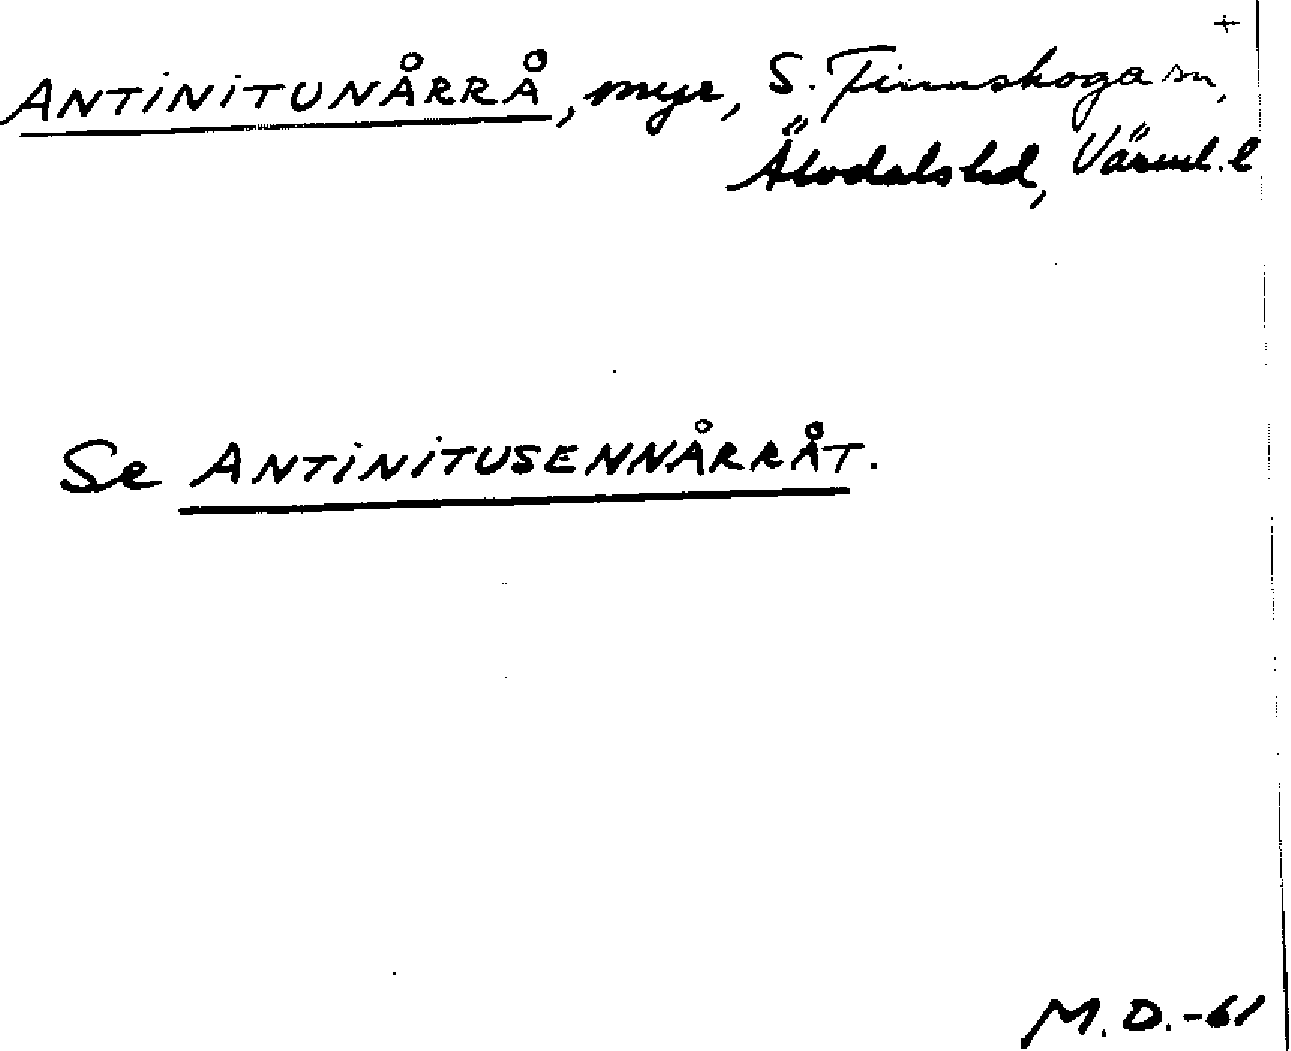 +
ANTINITUNÅRRÅ, myr, S. Finnskoga sn,
Älvdals hd, Värml. l
Se ANTINITUSENNÅRRÅT.
M. D. -61